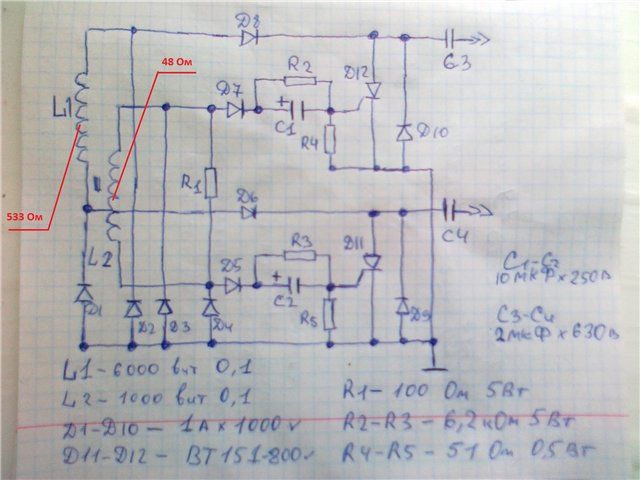 D8
48 Ом
R2
D12
C3
L1
D7
+
C1
R4
D10
533 Ом
R1
D6
D11
C4
L2
R3
D5
+
C2
R5
D1
D2
D3
D4
D9
C1-C2
10 МКФ х 250В
C3-C4
2 МКФ х 630В
L1 - 6000 вит 0,1
L2 - 1000 вит 0,1
R1 - 100 Ом 5Вт
D1-D10 - 1А х 1000v
R2-R3 - 6,2 кОм 5Вт
D11-D12 - BT151-800v
R4-R5 - 51 Ом 0,5Вт